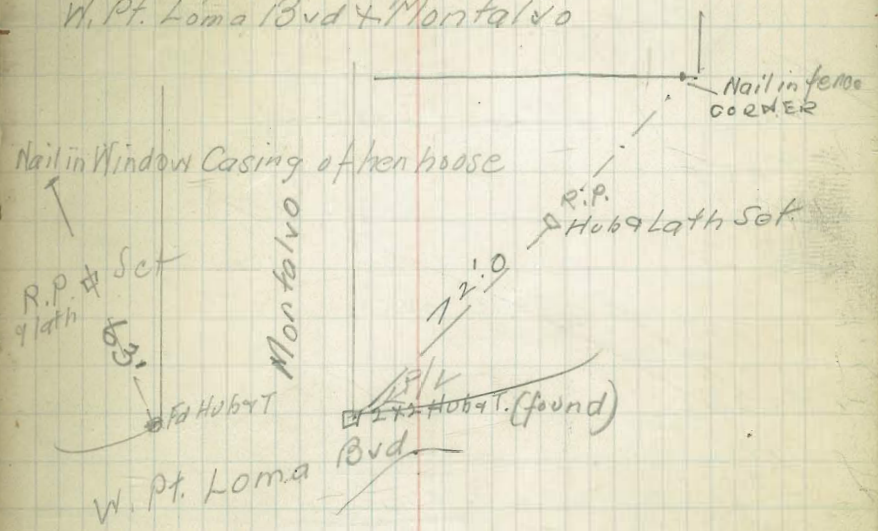 W. Pt. Loma Bvd + Montalvo
Nail in fence
CORNER
Nail in Window Casing of hen hoose
R.P.
Hub & Lath Set.
Montalvo
R.P. Set
& lath
63'
12'.0
P/L
Fd Hub & T
2x2 Hub & T. (found)
W. Pt. Loma Bvd.